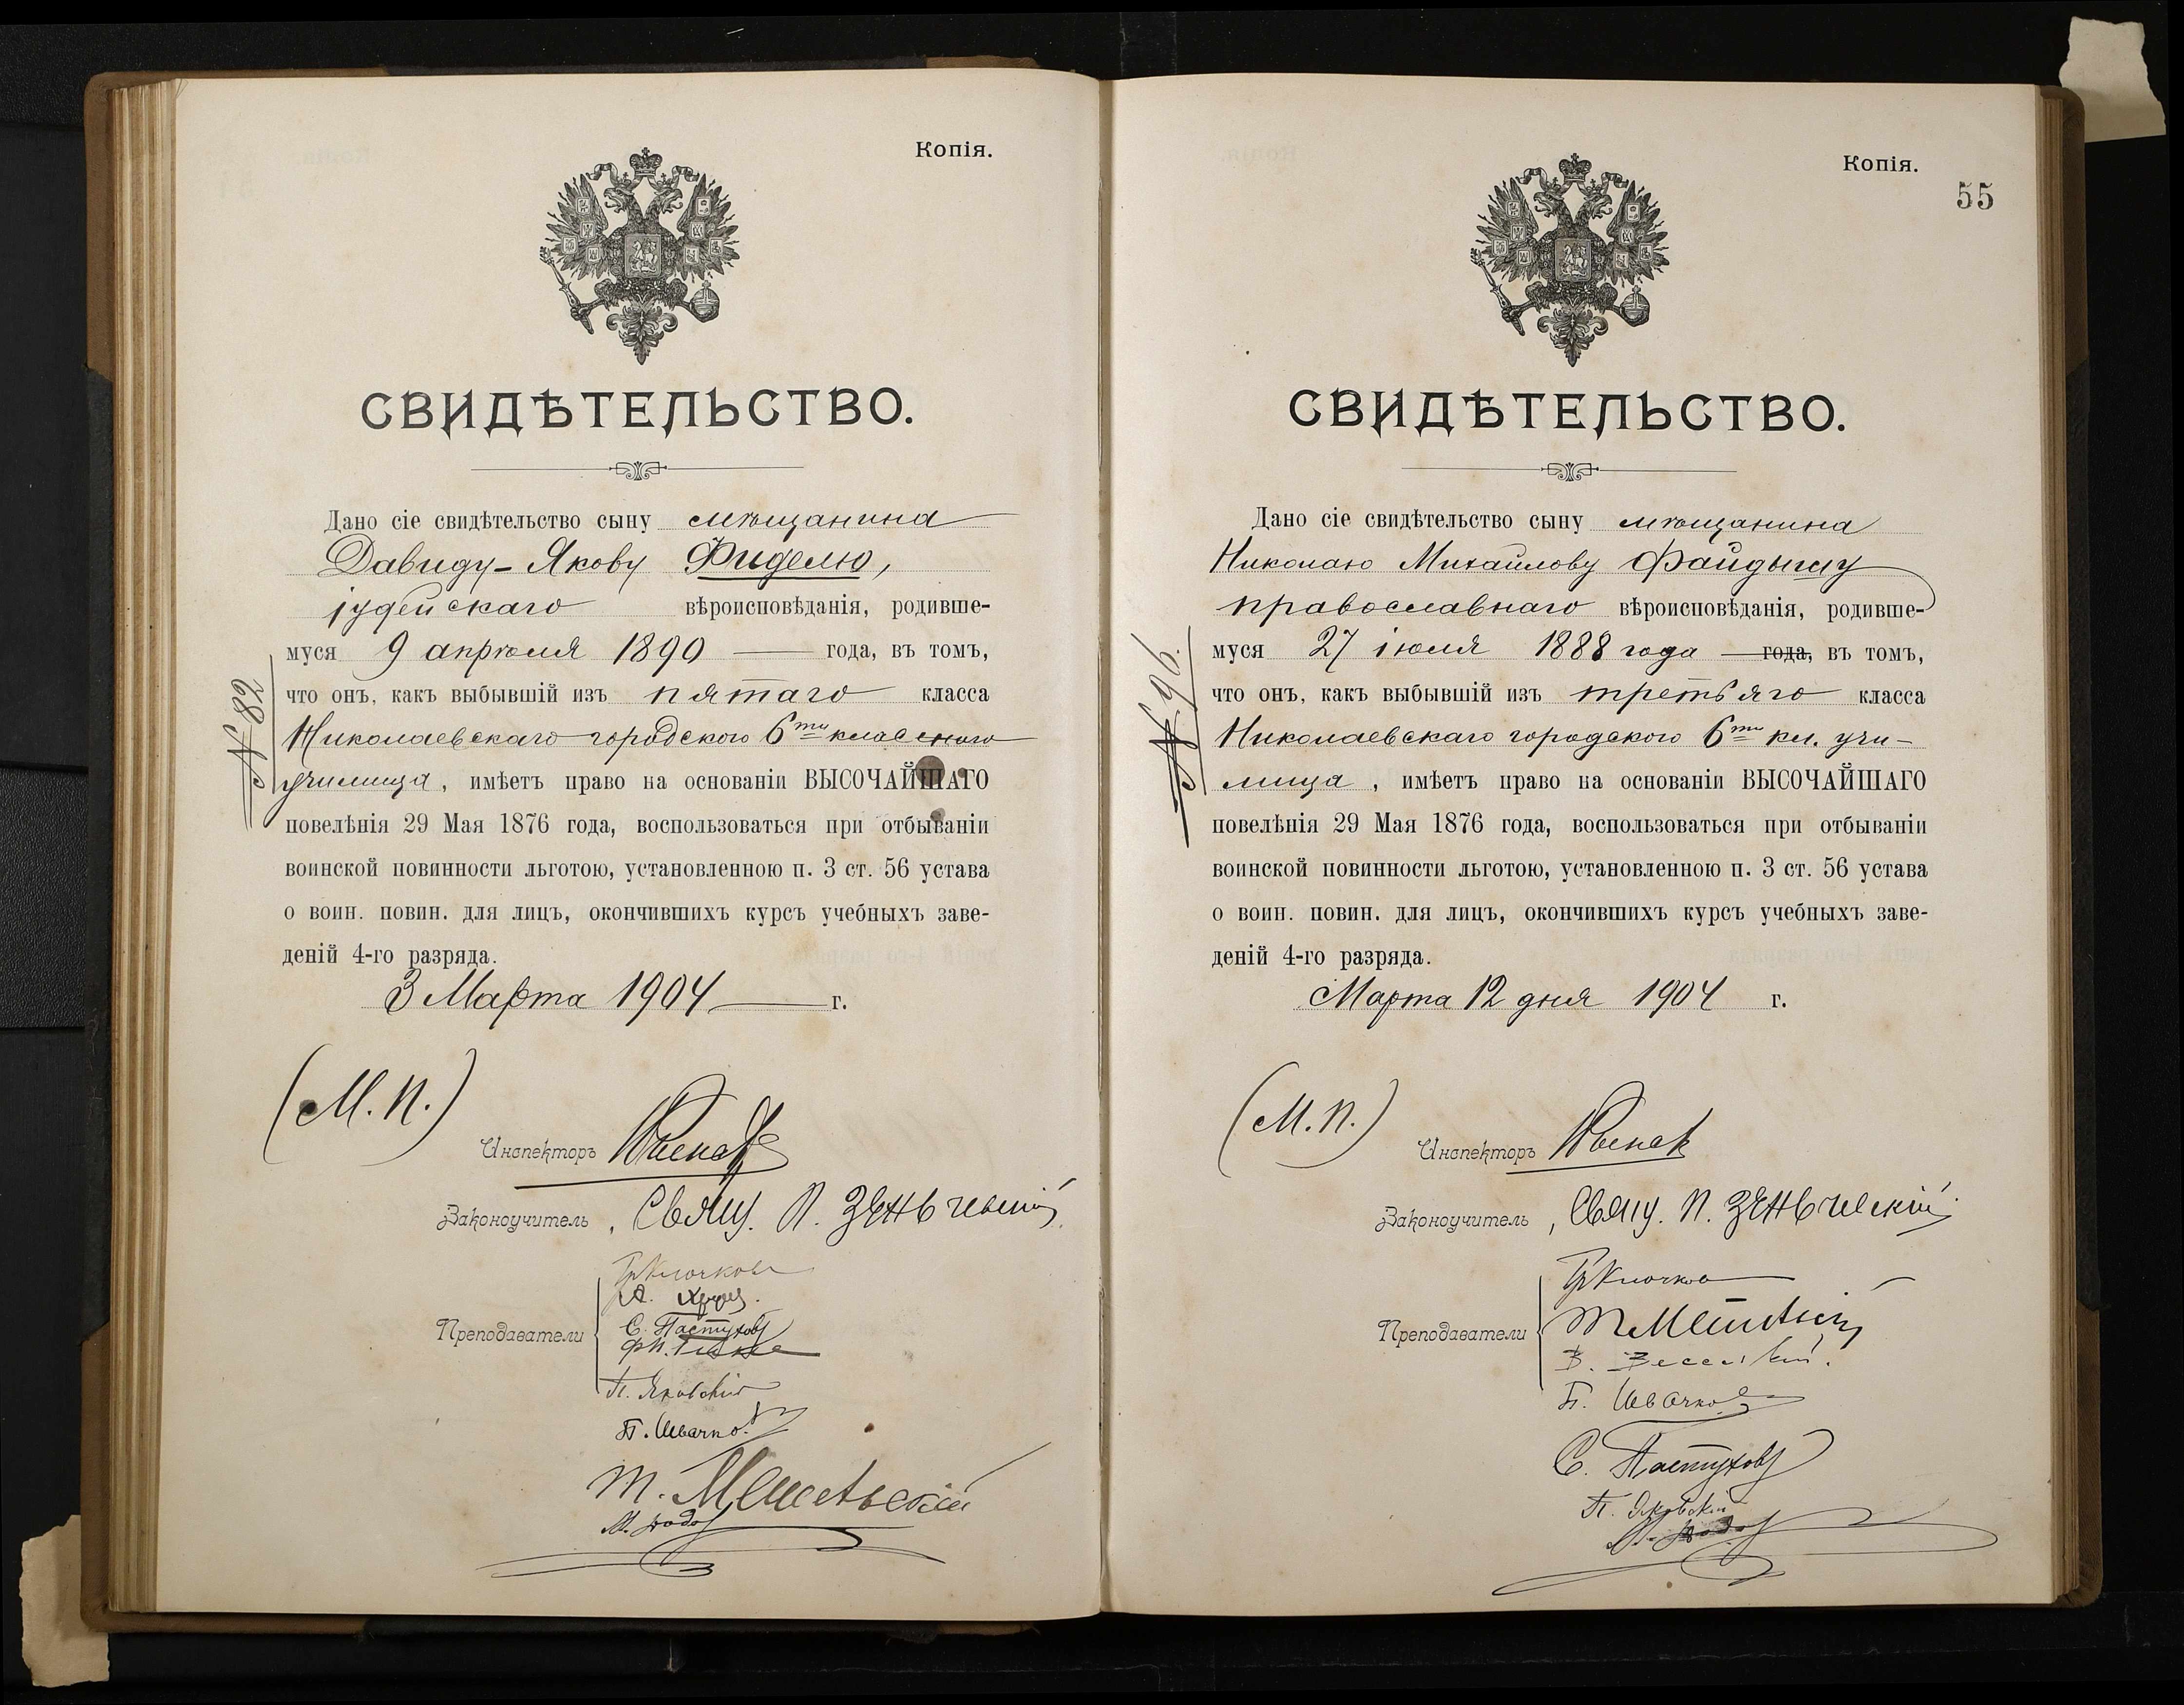 Копія.
СВИДѢТЕЛЬСТВО.
Дано сіе свидѣтельство сыну мѣщанина
Давиду-Якову Фиделю,
іудейскаго вѣроисповѣданія, родивше-
муся 9 апрѣля 1890 года, въ томъ,
что онъ, какъ выбывшій изъ пятаго класса
Николаевскаго городского 6ти класснаго
училища, имѣетъ право на основаніи ВЫСОЧАЙШАГО
повелѣнія 29 Мая 1876 года, воспользоваться при отбываніи
воинской повинности льготою, установленною п. 3 ст. 56 устава
о воин. повин. для лицъ, окончившихъ курсъ учебныхъ заве-
деній 4-го разряда.
3 Марта 1904 г.
(М.П.)
Инспекторъ
Законоучитель, Свящ. П. Зеньчевскій
Преподаватели
Гр Клочковъ
С. Пастуховъ
П. Яковскій
П. Швачко
№ 89
Копія.
55
СВИДѢТЕЛЬСТВО.
Дано сіе свидѣтельство сыну мѣщанина
Николаю Михайлову Файдышу
православнаго вѣроисповѣданія, родивше-
муся 27 іюля 1888 года года, въ томъ,
что онъ, какъ выбывшій изъ третьяго класса
Николаевскаго городского 6ти кл. учи-
лища, имѣетъ право на основаніи ВЫСОЧАЙШАГО
повелѣнія 29 Мая 1876 года, воспользоваться при отбываніи
воинской повинности льготою, установленною п. 3 ст. 56 устава
о воин. повин. для лицъ, окончившихъ курсъ учебныхъ заве-
деній 4-го разряда.
Марта 12 дня 1904 г.
(М.П.)
Инспекторъ
Законоучитель, Свящ. П. Зеньчевскій
Преподаватели
Гр Клочковъ
П. Швачко
С. Пастуховъ
П. Яковскій
№ 96.